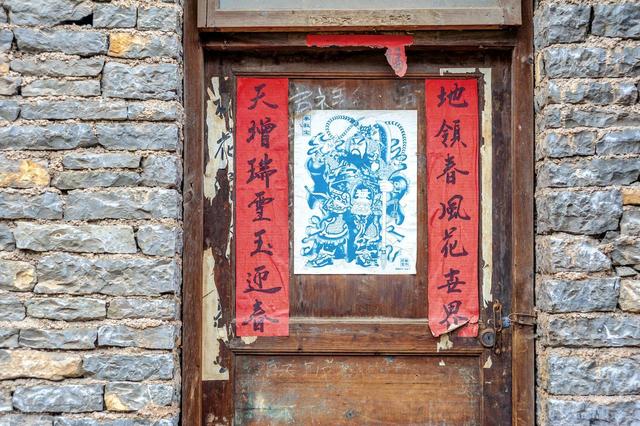 地領春風花世界
天增瑞雪玉迎春